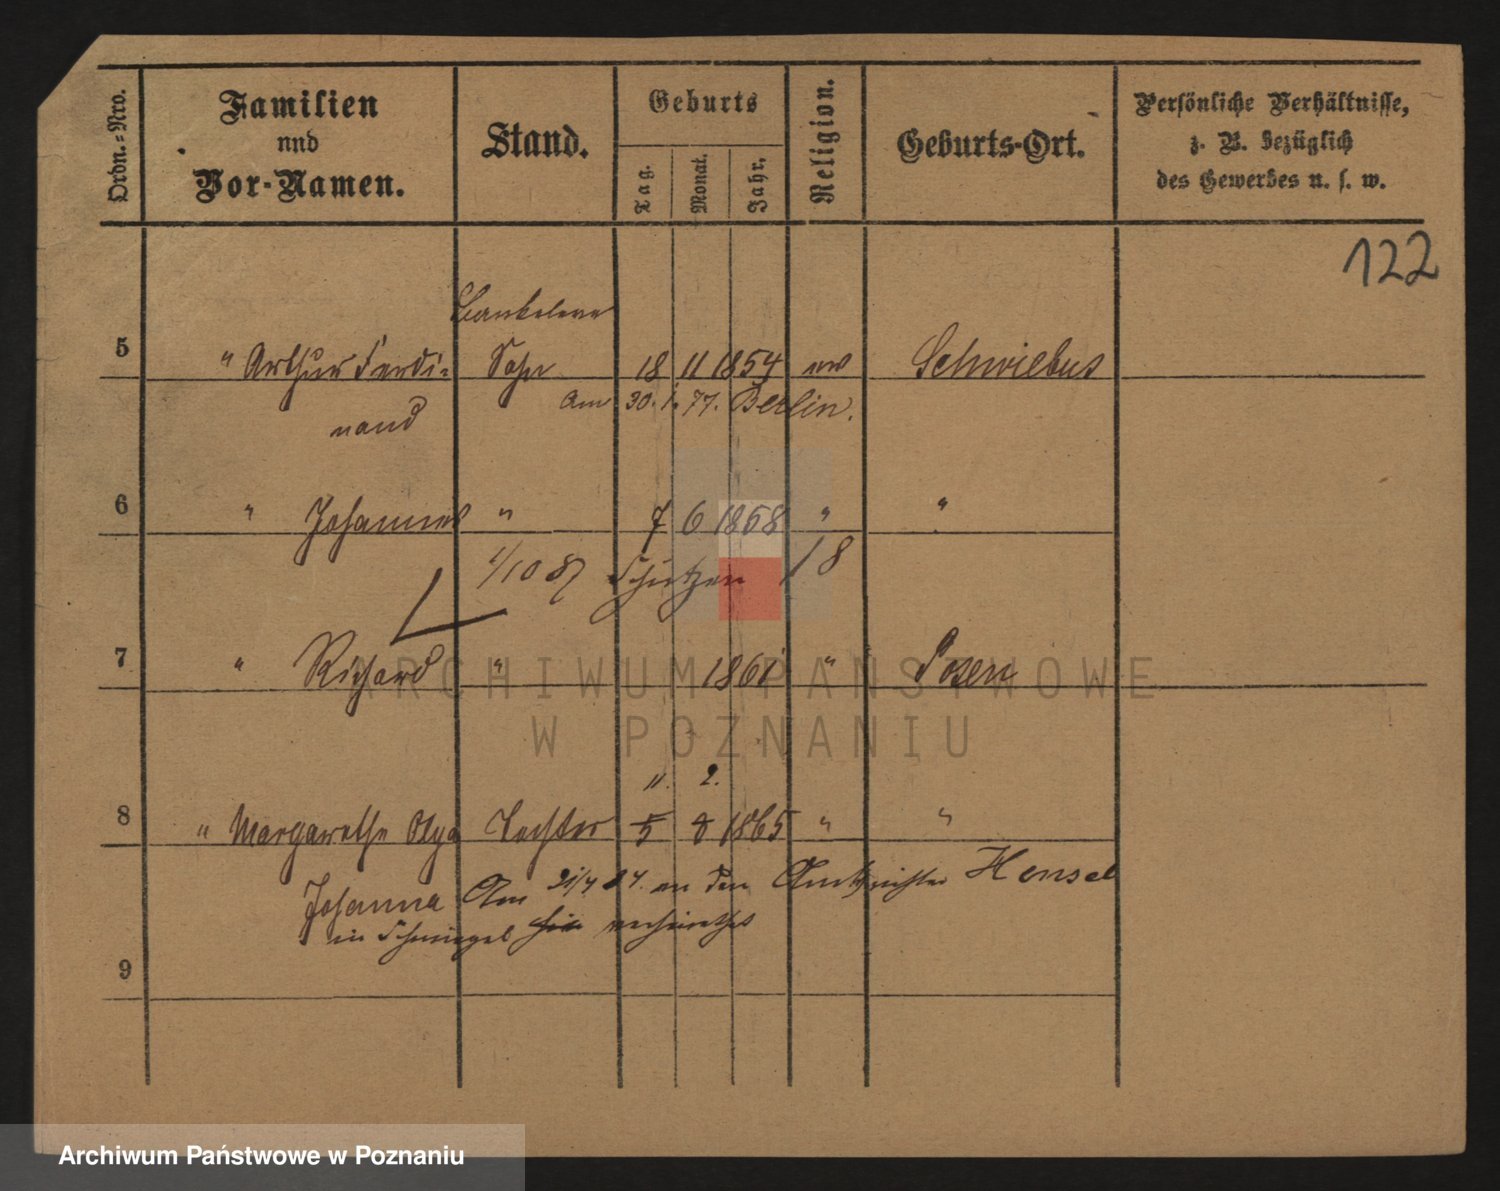 Ordn.-Nro.
Familien und Vor-Namen.
Stand.
Geburts
Tag.
Monat.
Jahr.
Religion.
Geburts-Ort.
Persönliche Verhältnisse,
z. B. bezüglich
des Gewerbes u. s. w.
122
5 " Arthur Ferdi= Sohn 18 11 1854 ev Schwiebus
nand
Am 30. 1. 77. Berlin.
6 " Johannes " 7 6 1858 " "
1/10 87 Schützen 18
7 " Richard " 1861 " Posen
11. 2.
8 " Margarethe Olga Tochter 5 8 1865 " "
Johanna Am 21/4 87. an den Amtsrichter Hensel
in Schmiegel verheirathet
9
ARCHIWUM PAŃSTWOWE
W POZNANIU
Archiwum Państwowe w Poznaniu